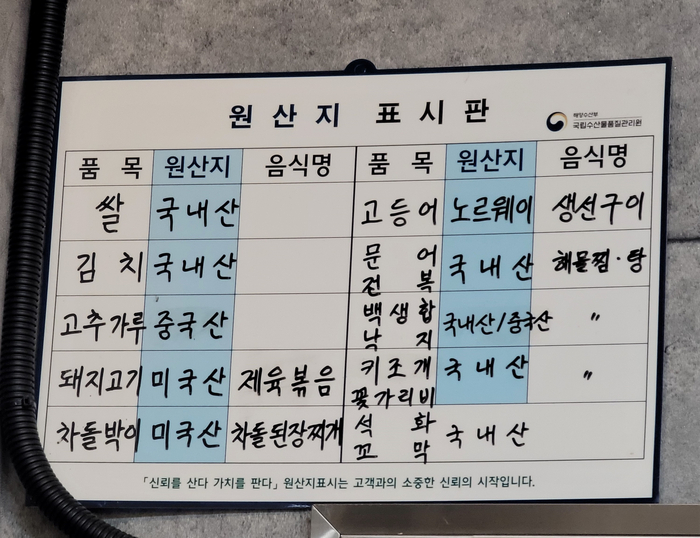 원산지 표시판
해양수산부
국립수산물품질관리원
품 목 원산지 음식명 품 목 원산지 음식명
쌀 국내산 고등어 노르웨이 생선구이
김치 국내산 문어 전복 국내산 해물찜·탕
고추가루 중국산 백생합 낙지 국내산/중국산 〃
돼지고기 미국산 제육볶음 키조개 꽃가리비 국내산 〃
차돌박이 미국산 차돌된장찌개 석화 꼬막 국내산
「신뢰를 산다 가치를 판다」 원산지표시는 고객과의 소중한 신뢰의 시작입니다.